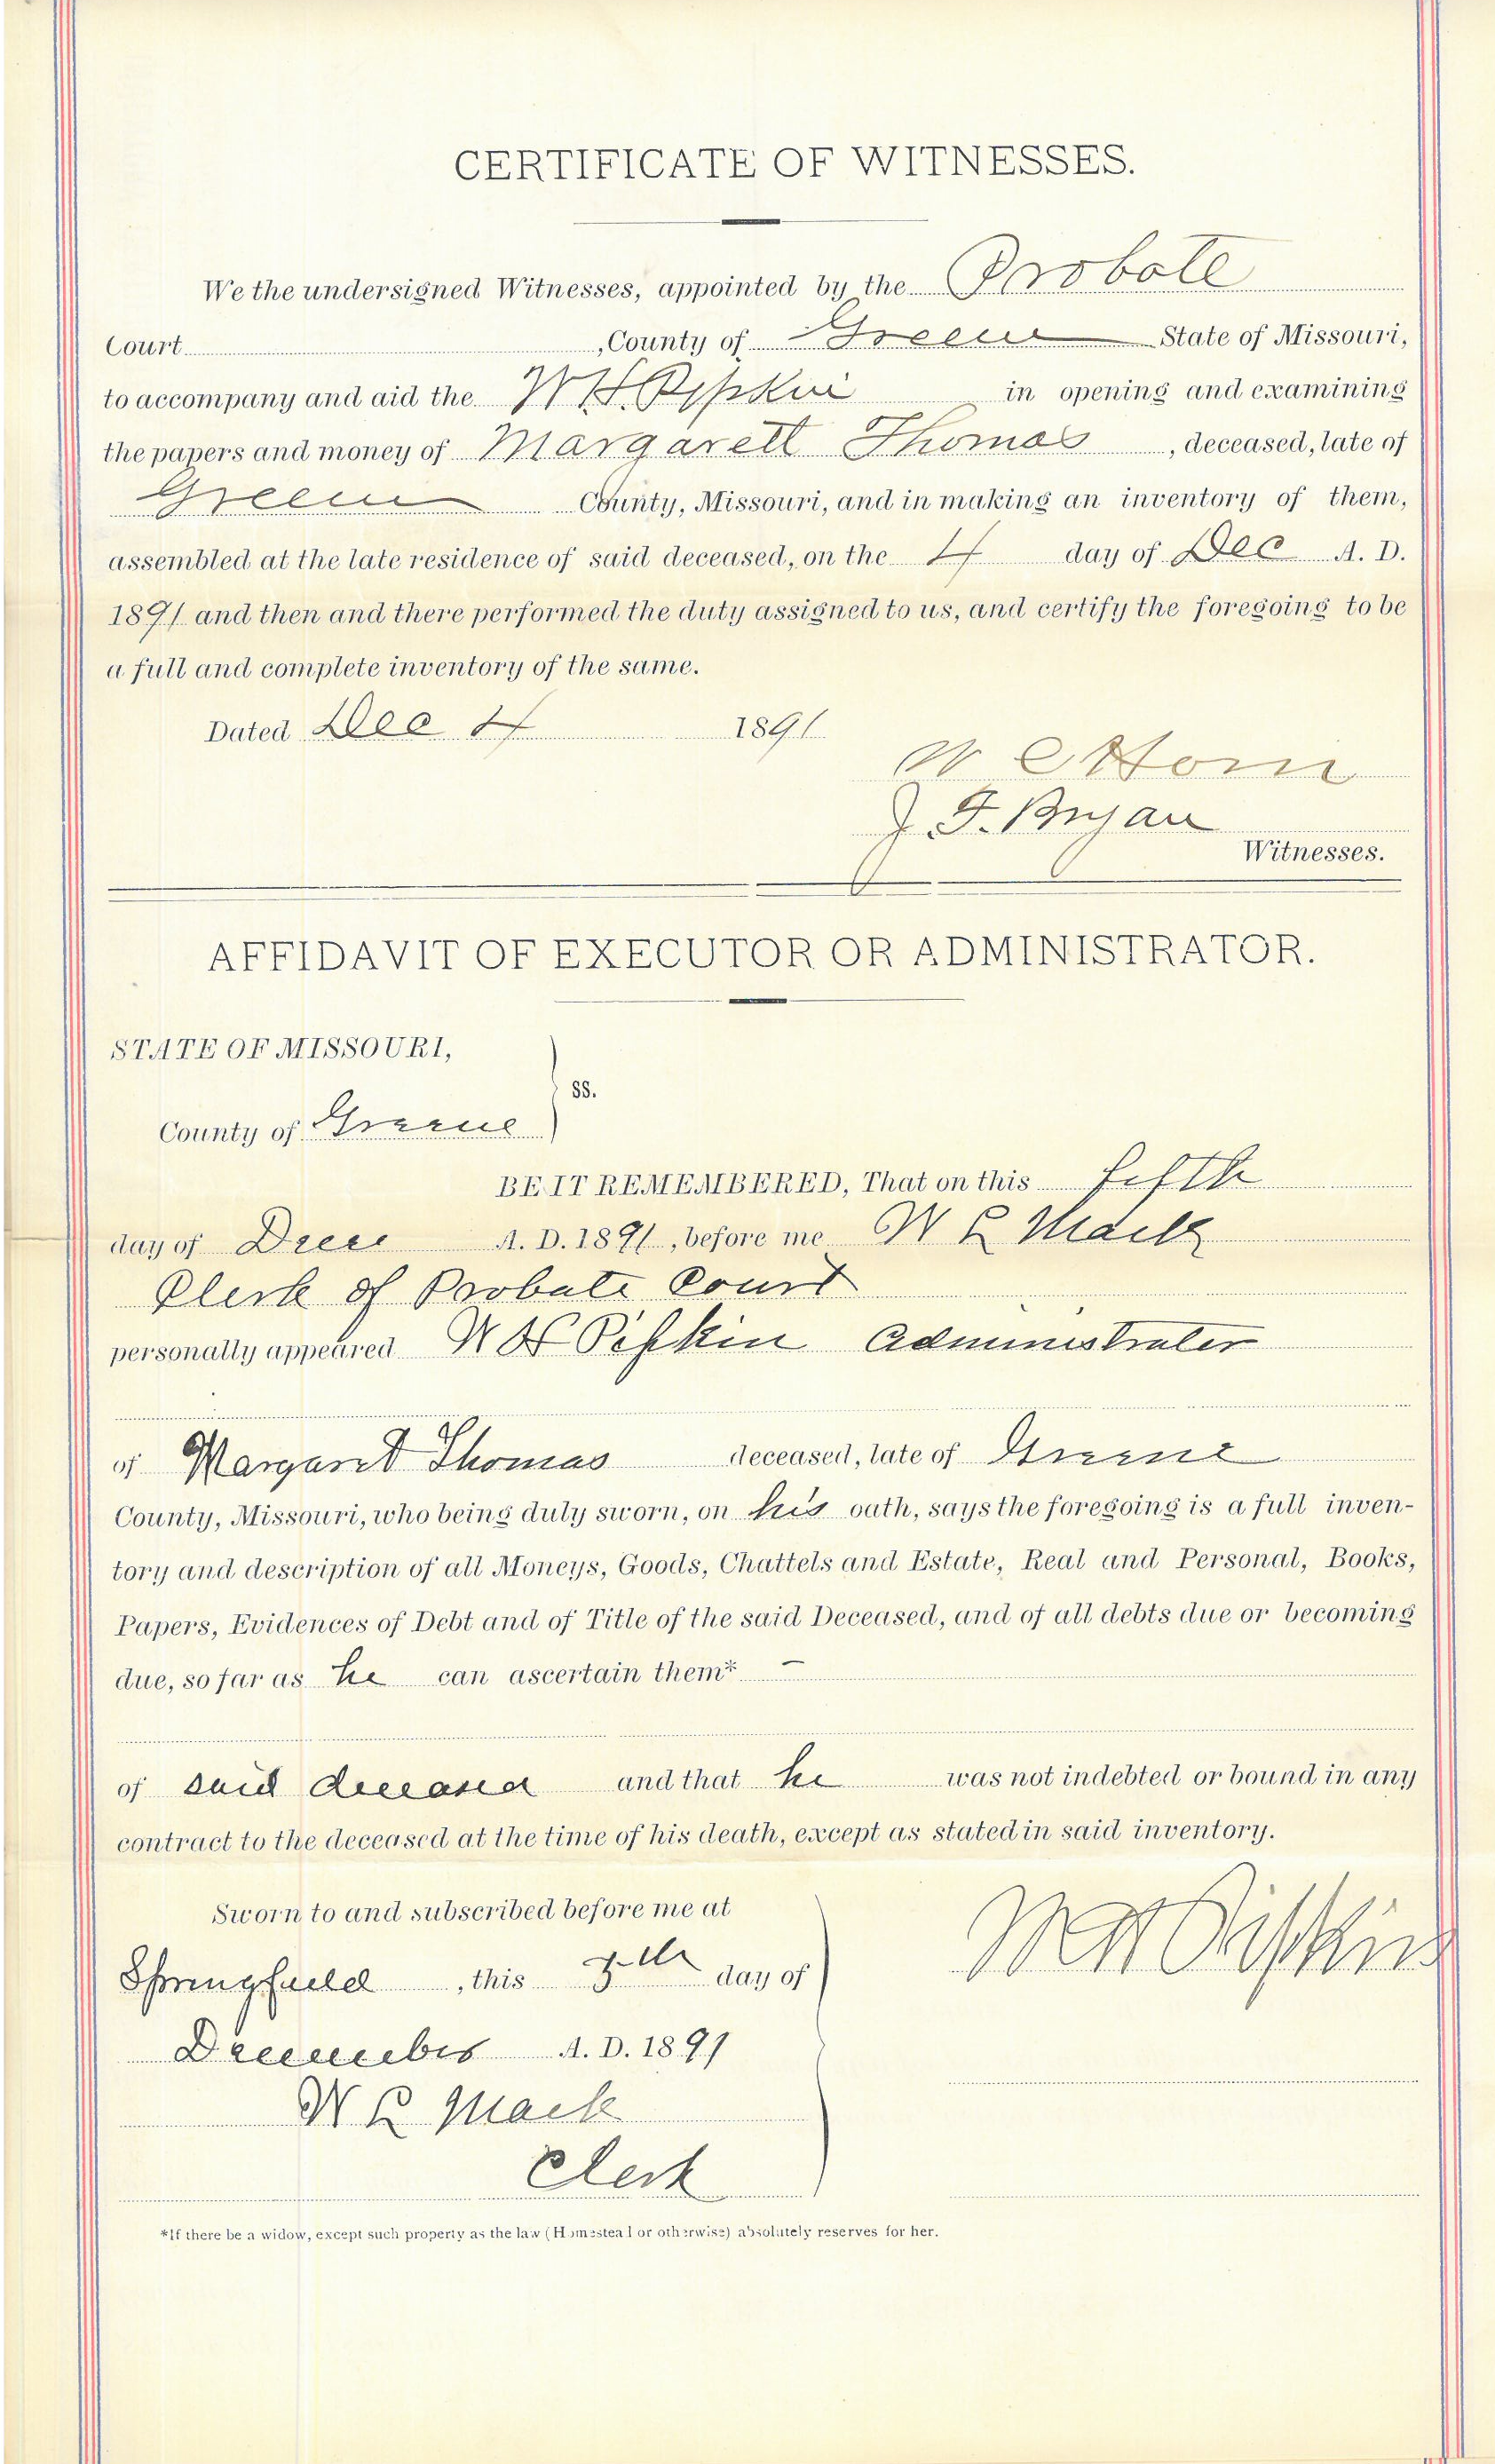 CERTIFICATE OF WITNESSES.
We the undersigned Witnesses, appointed by the Probate
Court , County of Greene State of Missouri,
to accompany and aid the W H. Pipkin in opening and examining
the papers and money of Margarett Thomas , deceased, late of
Greene County, Missouri, and in making an inventory of them,
assembled at the late residence of said deceased, on the 4 day of Dec A. D.
1891 and then and there performed the duty assigned to us, and certify the foregoing to be
a full and complete inventory of the same.
Dated Dec 4 1891
W C Horn
J. F. Bryan
Witnesses.
AFFIDAVIT OF EXECUTOR OR ADMINISTRATOR.
STATE OF MISSOURI,
ss.
County of Greene
BE IT REMEMBERED, That on this fifth
day of Dece A. D. 1891, before me W L Mack
Clerk of Probate Court
personally appeared W H Pipkin Administrater
of Margaret Thomas deceased, late of Greene
County, Missouri, who being duly sworn, on his oath, says the foregoing is a full inven-
tory and description of all Moneys, Goods, Chattels and Estate, Real and Personal, Books,
Papers, Evidences of Debt and of Title of the said Deceased, and of all debts due or becoming
due, so far as he can ascertain them*
of said deceased and that he was not indebted or bound in any
contract to the deceased at the time of his death, except as stated in said inventory.
Sworn to and subscribed before me at
Springfield , this 5th day of
December A. D. 1891
W H Pipkin
W L Mack
Clerk
*If there be a widow, except such property as the law (Homestead or otherwise) absolutely reserves for her.